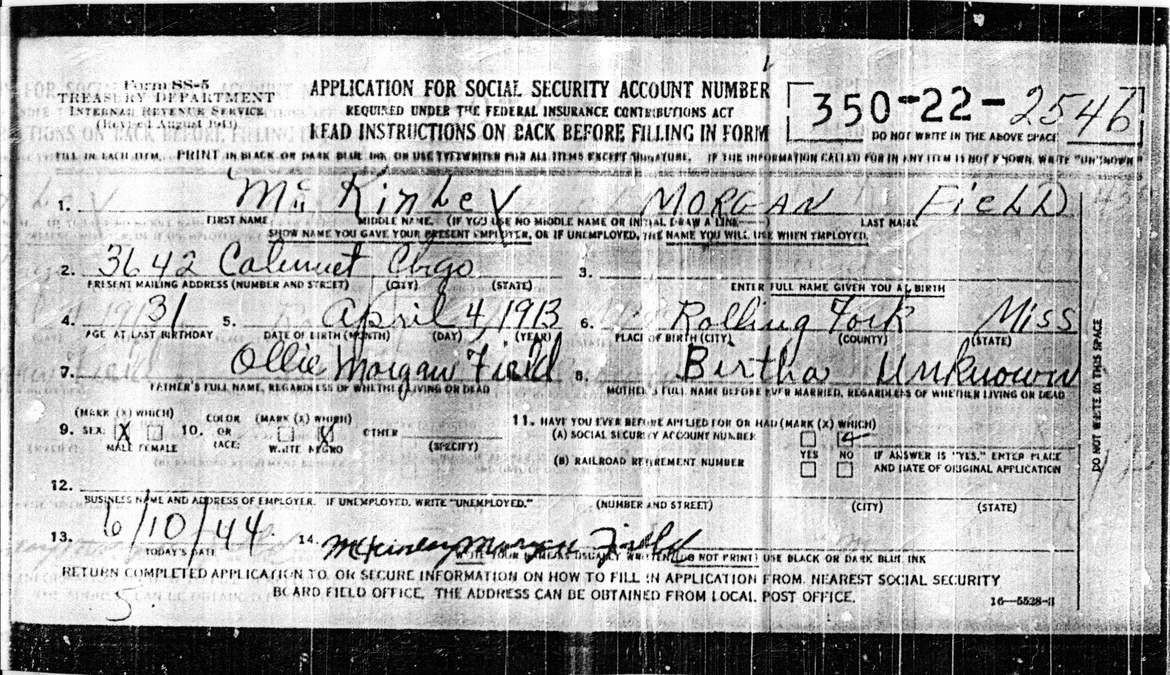 Form SS-5
TREASURY DEPARTMENT
INTERNAL REVENUE SERVICE
(Revised August 1941)
APPLICATION FOR SOCIAL SECURITY ACCOUNT NUMBER
REQUIRED UNDER THE FEDERAL INSURANCE CONTRIBUTIONS ACT
READ INSTRUCTIONS ON BACK BEFORE FILLING IN FORM
350-22-2546
DO NOT WRITE IN THE ABOVE SPACE
FILL IN EACH ITEM. PRINT IN BLACK OR DARK BLUE INK OR USE TYPEWRITER FOR ALL ITEMS EXCEPT SIGNATURE. IF THE INFORMATION CALLED FOR IN ANY ITEM IS NOT KNOWN, WRITE "UNKNOWN"
1. McKinley MORGAN FIELD
FIRST NAME MIDDLE NAME (IF YOU USE NO MIDDLE NAME OR INITIAL DRAW A LINE ——) LAST NAME
SHOW NAME YOU GAVE YOUR PRESENT EMPLOYER, OR IF UNEMPLOYED, THE NAME YOU WILL USE WHEN EMPLOYED.
2. 3642 Calumet Chgo 3.
PRESENT MAILING ADDRESS (NUMBER AND STREET) (CITY) (STATE) ENTER FULL NAME GIVEN YOU AT BIRTH
4. 31 5. April 4, 1913 6. Rolling Fork Miss
AGE AT LAST BIRTHDAY DATE OF BIRTH (MONTH) (DAY) (YEAR) PLACE OF BIRTH (CITY) (COUNTY) (STATE)
7. Ollie Morgan Field 8. Birtha Unknown
FATHER'S FULL NAME, REGARDLESS OF WHETHER LIVING OR DEAD MOTHER'S FULL NAME BEFORE EVER MARRIED, REGARDLESS OF WHETHER LIVING OR DEAD
9. SEX: (MARK (X) WHICH) X MALE FEMALE 10. COLOR OR RACE: (MARK (X) WHICH) WHITE X NEGRO OTHER (SPECIFY)
11. HAVE YOU EVER BEFORE APPLIED FOR OR HAD (MARK (X) WHICH)
(A) SOCIAL SECURITY ACCOUNT NUMBER
YES NO IF ANSWER IS "YES," ENTER PLACE
(B) RAILROAD RETIREMENT NUMBER AND DATE OF ORIGINAL APPLICATION
12.
BUSINESS NAME AND ADDRESS OF EMPLOYER. IF UNEMPLOYED, WRITE "UNEMPLOYED." (NUMBER AND STREET) (CITY) (STATE)
13. 6/10/44 14. McKinley Morgan Field
TODAY'S DATE WRITE YOUR NAME AS USUALLY WRITTEN (DO NOT PRINT) USE BLACK OR DARK BLUE INK
RETURN COMPLETED APPLICATION TO, OR SECURE INFORMATION ON HOW TO FILL IN APPLICATION FROM, NEAREST SOCIAL SECURITY
BOARD FIELD OFFICE. THE ADDRESS CAN BE OBTAINED FROM LOCAL POST OFFICE.
16—5528-1
5
DO NOT WRITE IN THIS SPACE